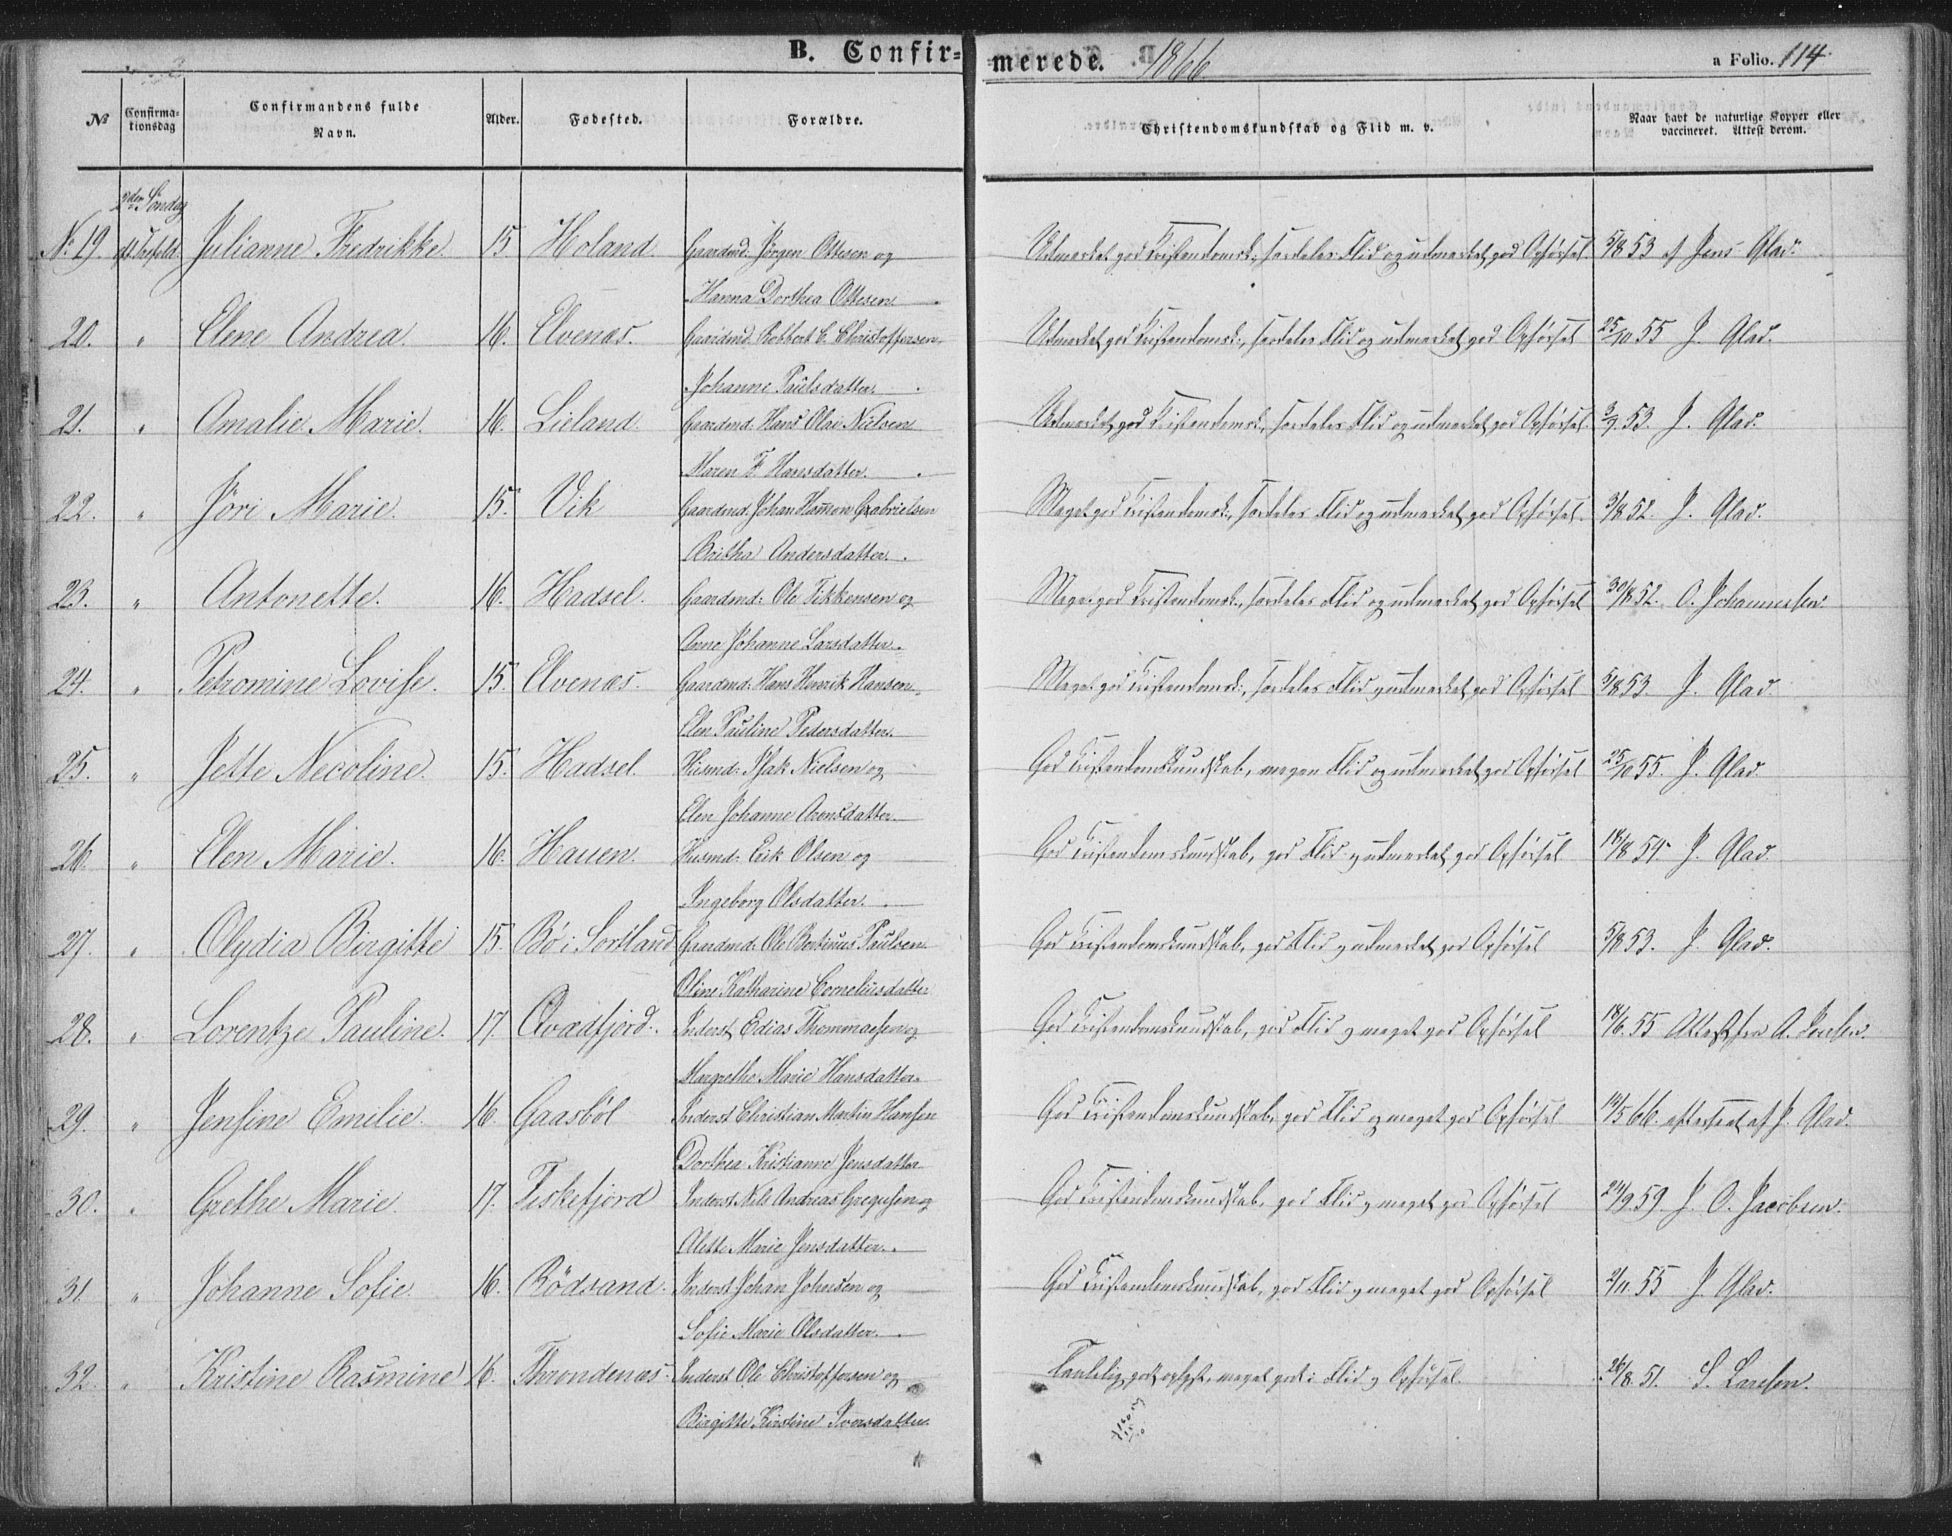 B. Confirmerede. 1866
a Folio. 114
№ Confirmationsdag Confirmandens fulde Navn. Alder. Fødested. Forældre. Christendomskundskab og Flid m. v. Naar havt de naturlige Kopper eller vaccineret. Attest derom.
2den Søndag
No 19. Julianne Fredrikke. 15. Holand. Gaardmd. Jørgen Ottesen og Udmerket god Kristendomsk., særdeles Flid og udmerket god Opførsel. 5/8 53 af Jens Glad.
Hanna Dorthea Ottesen.
20. " Elene Andrea. 16. Elvenæs. Gaardmd. Robbert C. Christoffersen, Udmerket god Kristendomsk., særdeles Flid og udmerket god Opførsel 25/10 55 J. Glad.
Johanne Paulsdatter.
21. " Amalie Marie. 16. Lieland. Gaardmd. Hans Olai Nielsen Udmerket god Kristendomsk., særdeles Flid og udmerket god Opførsel. 3/9. 53. J. Glad.
Maren F Hansdatter.
22. " Jöri Marie. 15. Vik Gaardmd. Johan Hemmon Gabrielsen Meget god Kristendomsk., særdeles Flid og udmerket god Opførsel. 3/8 52. J. Glad.
Britha Andersdatter.
23. " Antonette. 16. Hadsel. Gaardmd: Ole Fikkensen og Meget god Kristendomsk., særdeles Flid og udmerket god Opførsel 30/8 52. O. Johannesen.
Anne Johanne Larsdatter.
24. " Petromine Lovise. 15. Elvenæs. Gaardmd. Hans Henrik Hansen, Meget god Kristendomsk., særdeles Flid og udmerket god Opførsel 5/8 53 J. Glad.
Elen Pauline Pedersdatter.
25. " Jette Necoline. 15. Hadsel. Husmd: Isak Nielsen og God Kristendomskundskab, megen Flid og udmerket god Opførsel 25/10 55. J. Glad
Elen Johanne Aronsdatter.
26. " Elen Marie. 16. Hauen. Husmd: Erik Olsen og God Kristendomskundskab, god Flid og udmerket god Opførsel 18/8 54. J. Glad.
Ingeborg Olsdatter.
27. " Olydia Birgitte 15. Bö i Sortland Gaardmd: Ole Bertinus Paulsen God Kristendomskundskab, god Flid og udmerket god Opførsel 5/8 53. J. Glad.
Oline Katharine Corneliusdatter
28. " Lorentze Pauline. 17. Qvædfjord. Inderst Edias Thommæsen og God Kristendomskundskab, god Flid og meget god Opførsel 18/6. 55 Attest fra A.
Margrethe Marie Hansdatter.
29. " Jensine Emilie. 16. Gaasböl Inderst Christian Martin Hansen God Kristendomskundskab, god Flid og meget god Opførsel 14/5 66. efterseet af J. Glad.
Dorthea Kristianne Jensdatter
30. " Grethe Marie. 17. Fiskefjord Inderst Nils Andreas Gregusen og God Kristendomskundskab, god Flid og meget god Opførsel 24/9. 59. J. O. Jacobsen.
Alette Marie Jensdatter.
31 " Johanne Sofie. 16. Rödsand. Inderst Johan Johnsen og God Kristendomskundskab, god Flid og meget god Opførsel 2/11. 55 J. Glad.
Sofie Marie Olsdatter.
32. " Kristine Rasmine 16. Throndenæs. Inderst Ole Christoffersen og Taalelig godt oplyst, meget god i Flid og Opførsel. 26/8. 51. S. Larsen.
Birgitte Kirstine Iversdatter